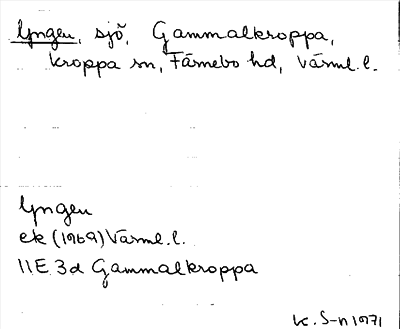 Yngen, sjö, Gammalkroppa,
Kroppa sn, Färnebo hd, Värml. l.
Yngen
ek (1969) Värml. l.
11E 3d Gammalkroppa
K. S-n 1971